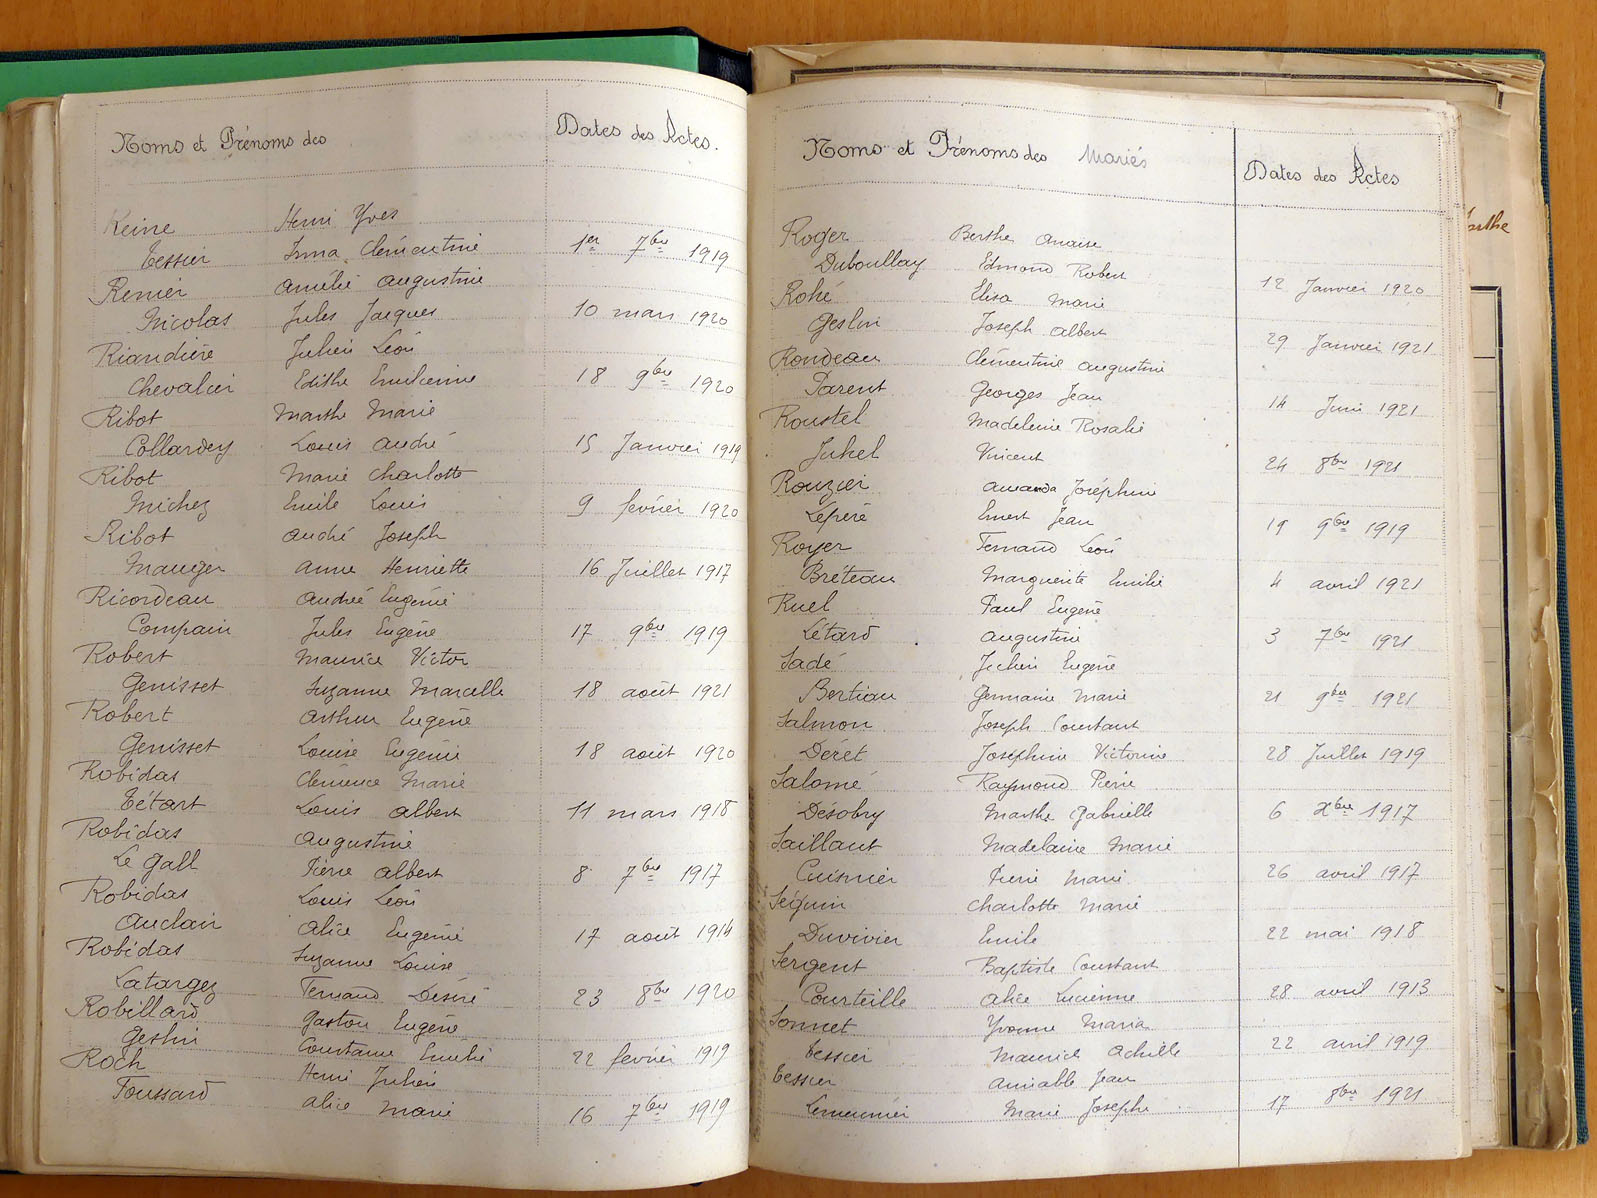 Noms et Prénoms des Dates des Actes.
Reine Henri Yves
Tessier Irma Clémentine 1er 7bre 1919
Renier Amélie Augustine
Nicolas Jules Jacques 10 mars 1920
Riandière Julien Léon
Chevalier Edithe Emilienne 18 9bre 1920
Ribot Marthe Marie
Collardey Louis André 15 Janvier 1919
Ribot Marie Charlotte
Michez Emile Louis 9 février 1920
Ribot André Joseph
Mauger Anne Henriette 16 Juillet 1917
Ricordeau Andrée Eugénie
Compain Jules Eugène 17 9bre 1919
Robert Maurice Victor
Genisset Suzanne Marcelle 18 août 1921
Robert Arthur Eugène
Genisset Louise Eugénie 18 août 1920
Robidas Clémence Marie
Tétart Louis Albert 11 mars 1918
Robidas Augustine
Le Gall Pierre Albert 8 7bre 1917
Robidas Louis Léon
Auclair Alice Eugénie 17 août 1914
Robidas Suzanne Louise
Latargez Fernand Désiré 23 8bre 1920
Robillard Gaston Eugène
Geslin Constance Emilie 22 février 1919
Roch Henri Julien
Foussard Alice Marie 16 7bre 1919
Noms et Prénoms des Mariés Dates des Actes
Roger Berthe Anaise
Duboullay Edmond Robert 12 Janvier 1920
Rohé Elisa Marie
Geslin Joseph Albert 29 Janvier 1921
Rondeau Clémentine Augustine
Parent Georges Jean 14 Juin 1921
Roustel Madeleine Rosalie
Juhel Vincent 24 8bre 1921
Rouzier Amanda Joséphine
Lépéré Ernest Jean 19 9bre 1919
Royer Fernand Léon
Bréteau Marguerite Emilie 4 avril 1921
Ruel Paul Eugène
Létard Augustine 3 7bre 1921
Sadé Julien Eugène
Bertiau Germaine Marie 21 9bre 1921
Salmon Joseph Constant
Deret Joséphine Victorine 28 Juillet 1919
Salomé Raymond Pierre
Désobry Marthe Gabrielle 6 Xbre 1917
Saillant Madelaine Marie
Cuisnier Pierre Marie 26 avril 1917
Séguin Charlotte Marie
Duvivier Emile 22 mai 1918
Sergent Baptiste Constant
Courteille Alice Lucienne 28 avril 1913
Sonnet Yvonne Maria
Tessier Maurice Achille 22 avril 1919
Tessier Aimable Jean
Lemeunier Marie Josephe 17 8bre 1921